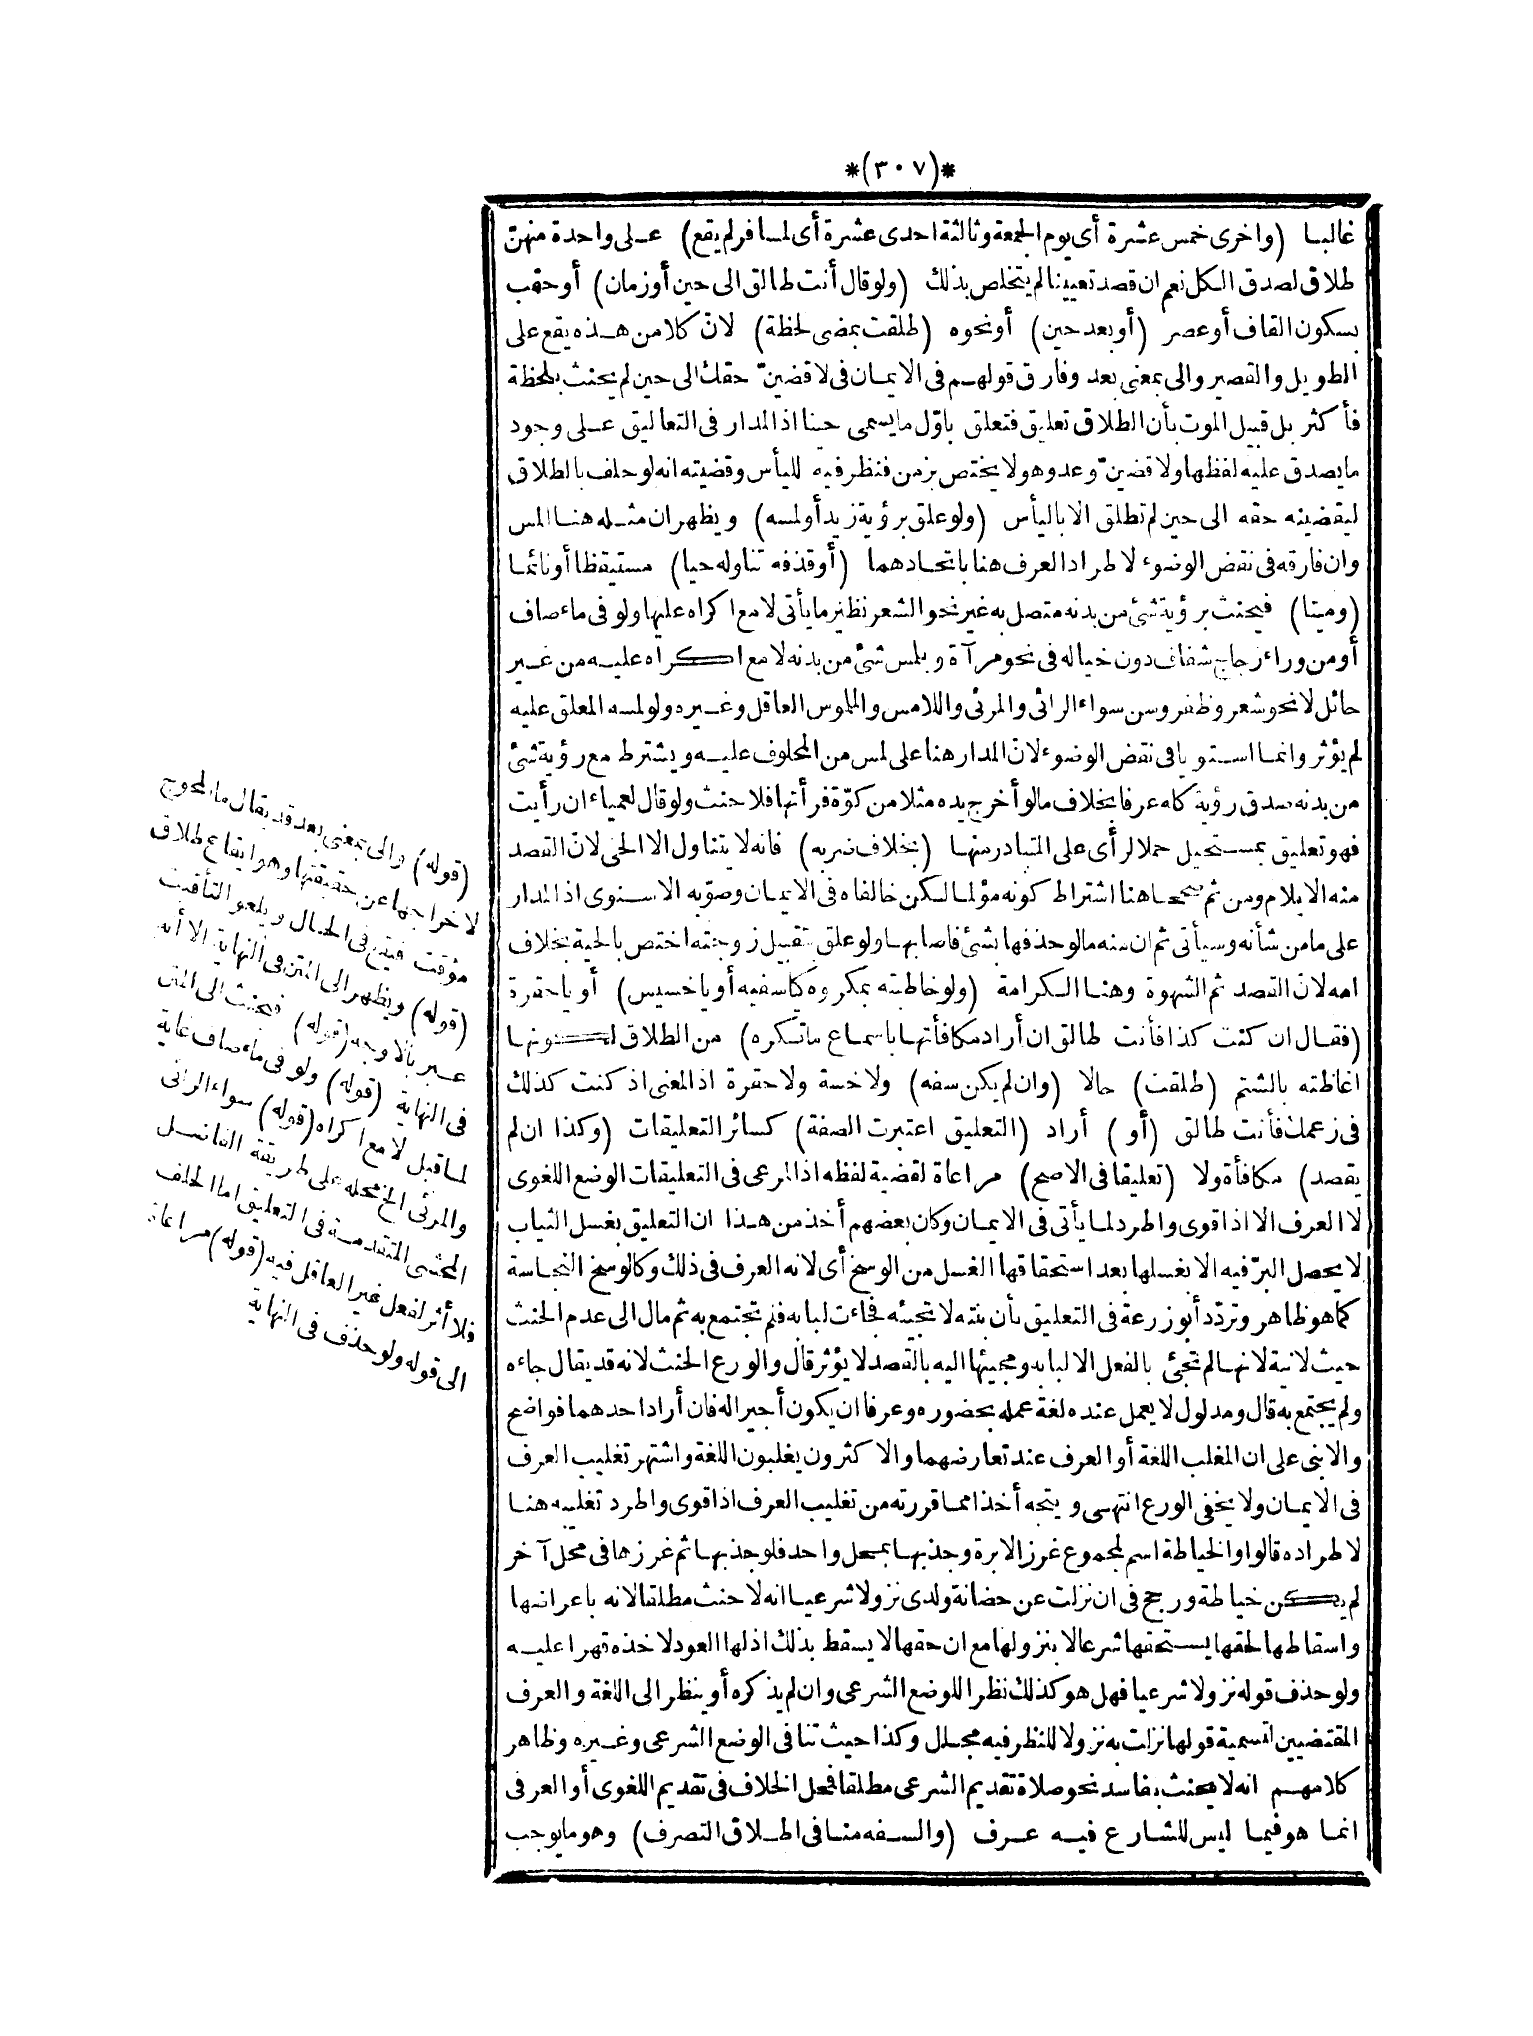 *(٣٠٧)*
غالبا (واخرى خمس عشرة أى يوم الجمعة وثالثة احدى عشرة أى لمسافر لم يقع) على واحدة منهنّ
طلاق لصدق الكل نعم ان قصد تعيينا لم يتخلص بذلك (ولو قال أنت طالق الى حين أو زمان) أو حقب
بسكون القاف أو عصر (أو بعد حين) أو نحوه (طلقت بمضى لحظة) لانّ كلا من هذه يقع على
الطويل والقصير والى بمعنى بعد وفارق قولهم فى الايمان فى لاقضينّ حقك الى حين لم يحنث بلحظة
فأكثر بل قبيل الموت بأن الطلاق تعليق فتعلق باوّل ما يسمى حينا اذ المدار فى التعاليق على وجود
ما يصدق عليه لفظها ولاقضينّ وعد وهو لا يختص بزمن فنظر فيه لليأس وقضيته انه لو حلف بالطلاق
ليقضينه حقه الى حين لم تطلق الا باليأس (ولو علق برؤية زيد أو لمسه) ويظهر ان مثله هنا المس
وان فارقه فى نقض الوضوء لاطراد العرف هنا باتحادهما (أو قذفه تناوله حيا) مستيقظا أو نائما
(وميتا) فيحنث برؤية شئ من بدنه متصل به غير نحو الشعر نظير ما يأتى لا مع اكراه عليها ولو فى ماء صاف
أو من وراء زجاج شفاف دون خياله فى نحو مرآة وبلمس شئ من بدنه لا مع اكراه عليه من غير
حائل لا نحو شعر وظفر وسن سواء الرائى والمرئى واللامس والملموس العاقل وغيره ولو لمسه المعلق عليه
لم يؤثر وانما استويا فى نقض الوضوء لانّ المدار هنا على لمس من المحلوف عليه ويشترط مع رؤية شئ
من بدنه صدق رؤية كله عرفا بخلاف ما لو أخرج يده مثلا من كوّة فرأتها فلا حنث ولو قال لعمياء ان رأيت
فهو تعليق بمستحيل حملا لرأى على المتبادر منها (بخلاف ضربه) فانه لا يتناول الا الحى لان القصد
منه الايلام ومن ثم صححا هنا اشتراط كونه مؤلما لكن خالفاه فى الايمان وصوّبه الاسنوى اذ المدار
على ما من شأنه وسيأتى ثم ان منه ما لو حذفها بشئ فاصابها ولو علق بتقبيل زوجته اختص بالحية بخلاف
امه لان القصد ثم الشهوة وهنا الكرامة (ولو خاطبته بمكروه كياسفيه أو ياخسيس) أو ياحقرة
(فقال ان كنت كذا فأنت طالق ان أراد مكافأتها باسماع ما تكره) من الطلاق لكونها
اغاظته بالشتم (طلقت) حالا (وان لم يكن سفه) ولا خسة ولا حقرة اذ المعنى اذ كنت كذلك
فى زعمك فأنت طالق (أو) أراد (التعليق اعتبرت الصفة) كسائر التعليقات (وكذا ان لم
يقصد) مكافأة ولا (تعليقا فى الاصح) مراعاة لقضية لفظه اذ المرعى فى التعليقات الوضع اللغوى
لا العرف الا اذا قوى واطرد لما يأتى فى الايمان وكان بعضهم أخذ من هذا ان التعليق بغسل الثياب
لا يحصل البرّ فيه الا بغسلها بعد استحقاقها الغسل من الوسخ أى لانه العرف فى ذلك وكالوسخ النجاسة
كما هو ظاهر وتردّد أبو زرعة فى التعليق بأن بنته لا تجيئه فجاءت لبابه فلم تجتمع به ثم مال الى عدم الحنث
حيث لانية لانها لم تجئ بالفعل الا لبابه ومجيئها اليه بالقصد لا يؤثر قال والورع الحنث لانه قد يقال جاءه
ولم يجتمع به قال ومدلول لا يعمل عنده لغة عمله بحضوره وعرفا ان يكون أجيرا له فان أراد احدهما فواضح
والا بنى على ان المغلب اللغة أو العرف عند تعارضهما والاكثرون يغلبون اللغة واشتهر تغليب العرف
فى الايمان ولا يخفى الورع انتهى ويتجه أخذا مما قررته من تغليب العرف اذا قوى واطرد تغليبه هنا
لاطراده قالوا والخياطة اسم لمجموع غرز الابرة وجذبها بمحل واحد فلو جذبها ثم غرزها فى محل آخر
لم يكن خياطة ورجح فى ان نزلت عن حضانة ولدى نزولا شرعيا انه لا حنث مطلقا لانه باعراضها
واسقاطها لحقها يستحقها شرعا لا بنزولها مع ان حقها لا يسقط بذلك اذ لها العود لاخذه قهرا عليه
ولو حذف قوله نزولا شرعيا فهل هو كذلك نظرا للوضع الشرعى وان لم يذكره أو ينظر الى اللغة والعرف
المقتضيين لتسمية قولها نزلت به نزولا للنظر فيه مجال وكذا حيث تنافى الوضع الشرعى وغيره وظاهر
كلامهم انه لا يحنث بفاسد نحو صلاة تقديم الشرعى مطلقا فمحل الخلاف فى تقديم اللغوى أو العرفى
انما هو فيما ليس للشارع فيه عرف (والسفه منافى اطلاق التصرف) وهو ما يوجب
(قوله) والى بمعنى بعد قد يقال ما المحوج
لاخراجها عن حقيقتها وهو ايقاع طلاق
مؤقت فيقع فى الحال ويلغو التأقيت
(قوله) ويظهر الى المتن فى النهاية الا أنه
عبر بالاوجه (قوله) فيحنث الى المتن
فى النهاية (قوله) ولو فى ماء صاف غاية
لما قبل لا مع اكراه (قوله) سواء الرائى
والمرئى الخ محله على طريقة الفاضل
المحشى المتقدمة فى التعليق اما الحلف
فلا أثر لفعل غير العاقل فيه (قوله) مراعاة
الى قوله ولو حذف فى النهاية